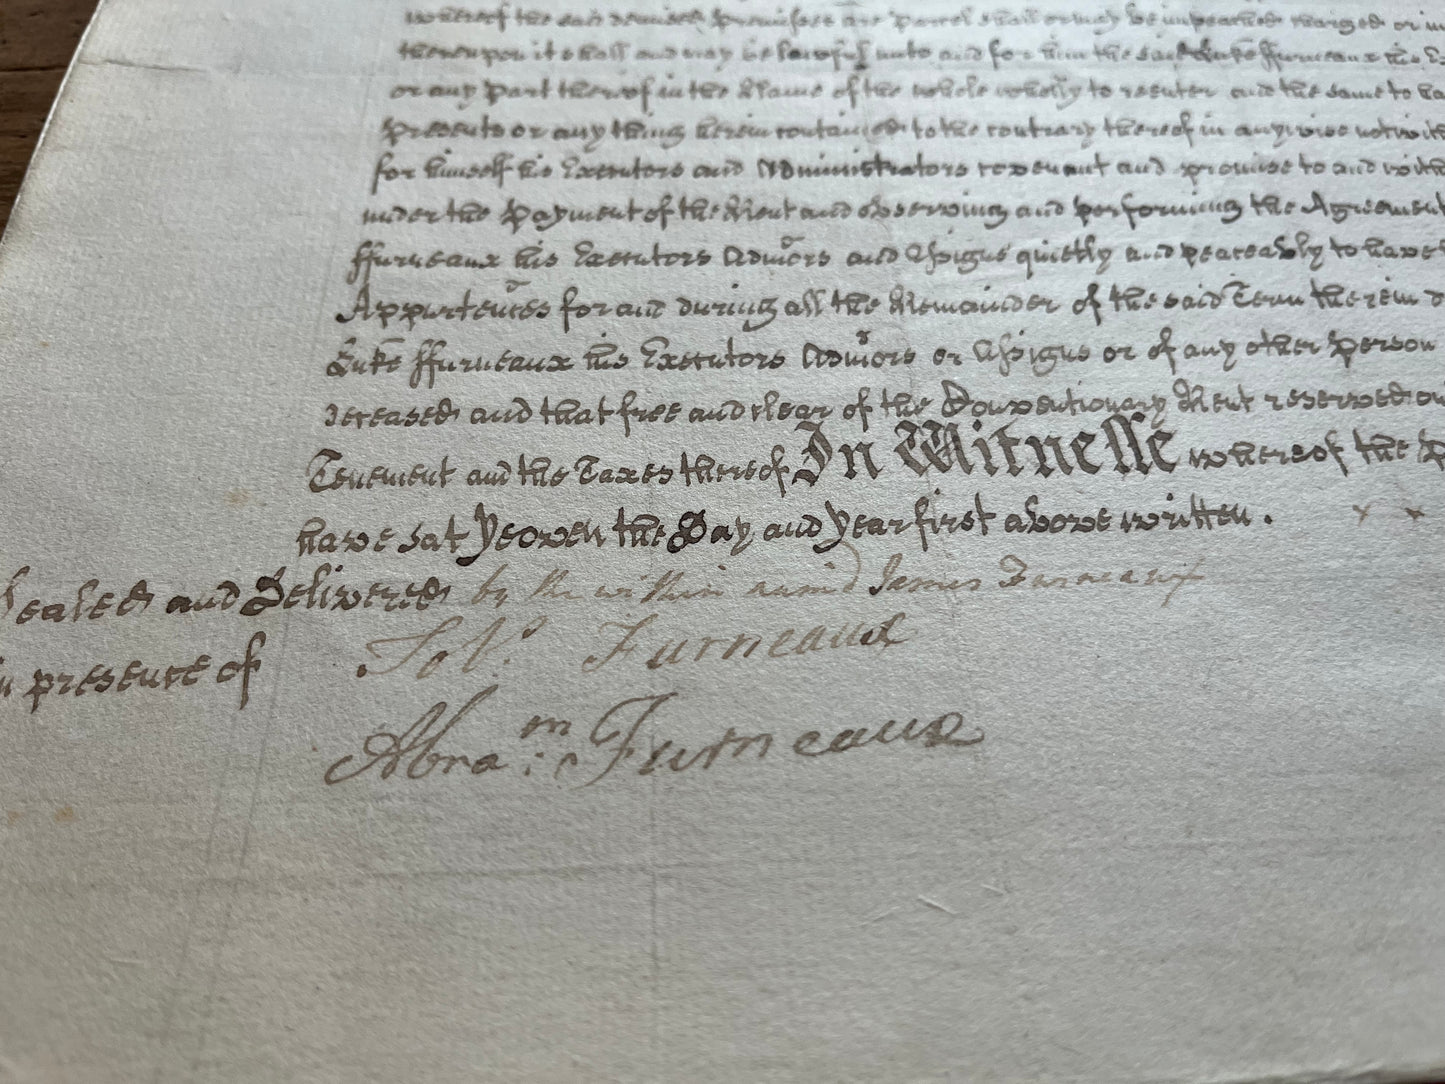 whereof the said demised premisses are parcel shall or may be impeached charged or in
thereupon it shall and may be lawful unto and for him the said Luke ffurneaux his E
or any part thereof in the Name of the whole wholly to reenter and the same to ha
presents or any thing herein contained to the contrary thereof in anywise notwith
for himself his Executors and Administrators covenant and promise to and with
under the payment of the Rent and observing and performing the Agreement
ffurneaux his Executors Admors and Assigns quietly and peaceably to have
Appurtences for and during all the Remainder of the said Term therein
Luke ffurneaux his Executors Admors or Assigns or of any other person
deceased and that free and clear of the Conventionary Rent reserved
Tenement and the Taxes thereof In Witnesse whereof the P
have sat yeoven the Day and year first above written .
Sealed and Delivered by the within named James Furneaux
in presence of
Furneaux
Abram : Furneaux